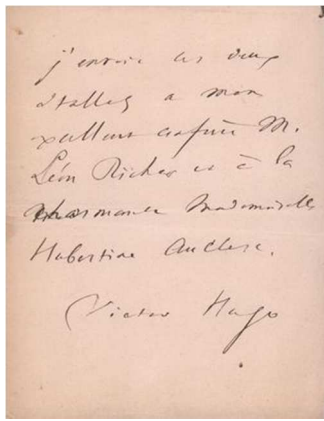 j'envoie ces deux
stalles a mon
excellent confrère M.
Léon Richer et à la
charmante Mademoiselle
Hubertine Auclerc.
Victor Hugo